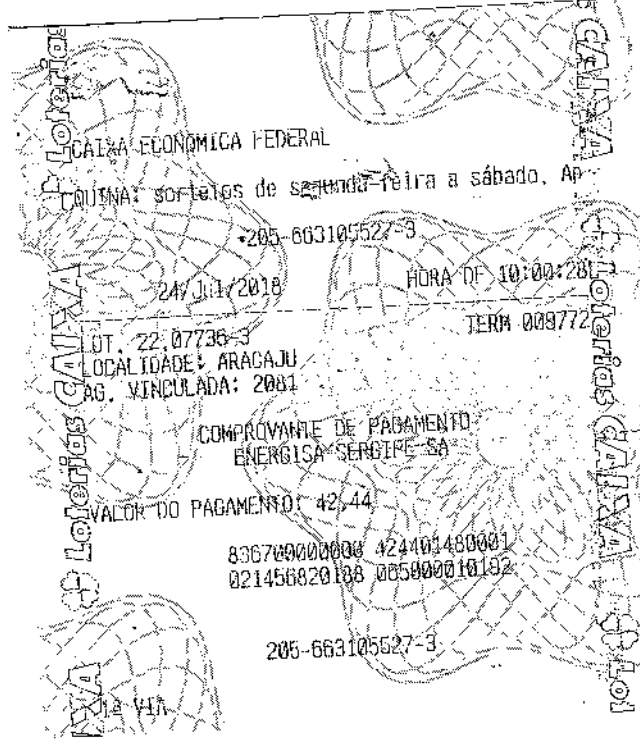 CAIXA ECONOMICA FEDERAL
QUINA: sorteios de segunda-feira a sábado. Ap
205-663105527-3
24/JUL/2018 HORA DF 10:00:28
LOT. 22.07736-3 TERM 009772
LOCALIDADE: ARACAJU
AG. VINCULADA: 2081
COMPROVANTE DE PAGAMENTO
ENERGISA SERGIPE SA
VALOR DO PAGAMENTO: 42,44
836700000000 424401480001
021456820188 065000010192
205-663105527-3
1ª VIA
Loterias CAIXA
Loterias CAIXA